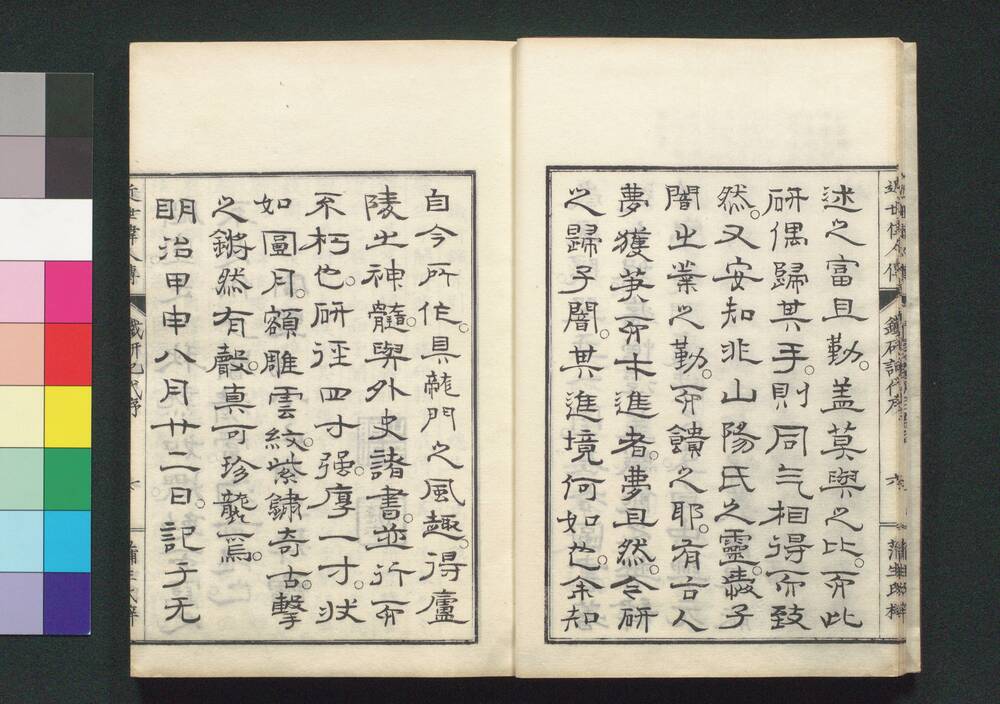 述之富且勤。盖莫與之比。而此
研偶歸其手。則同气相得而致
然。又安知非山陽氏之靈。嘉子
闇之業之勤。而饋之耶。有古人
夢獲筆。而才進者。夢且然。今研
之歸子闇。其進境何如也。余知
自今所作。具龍門之風趣。得廬
陵之神髓。與外史諸書。並行而
不朽也。研徑四寸强。厚一寸。狀
如圓月。額雕雲紋。紫鏽奇古。擊
之鏘然有聲。真可珍襲焉。
明治甲申八月廿二日。記于无
近世偉人傳
鐵研記代序
六
蒲生氏梓
近世偉人傳
鐵研記代序
蒲生氏梓